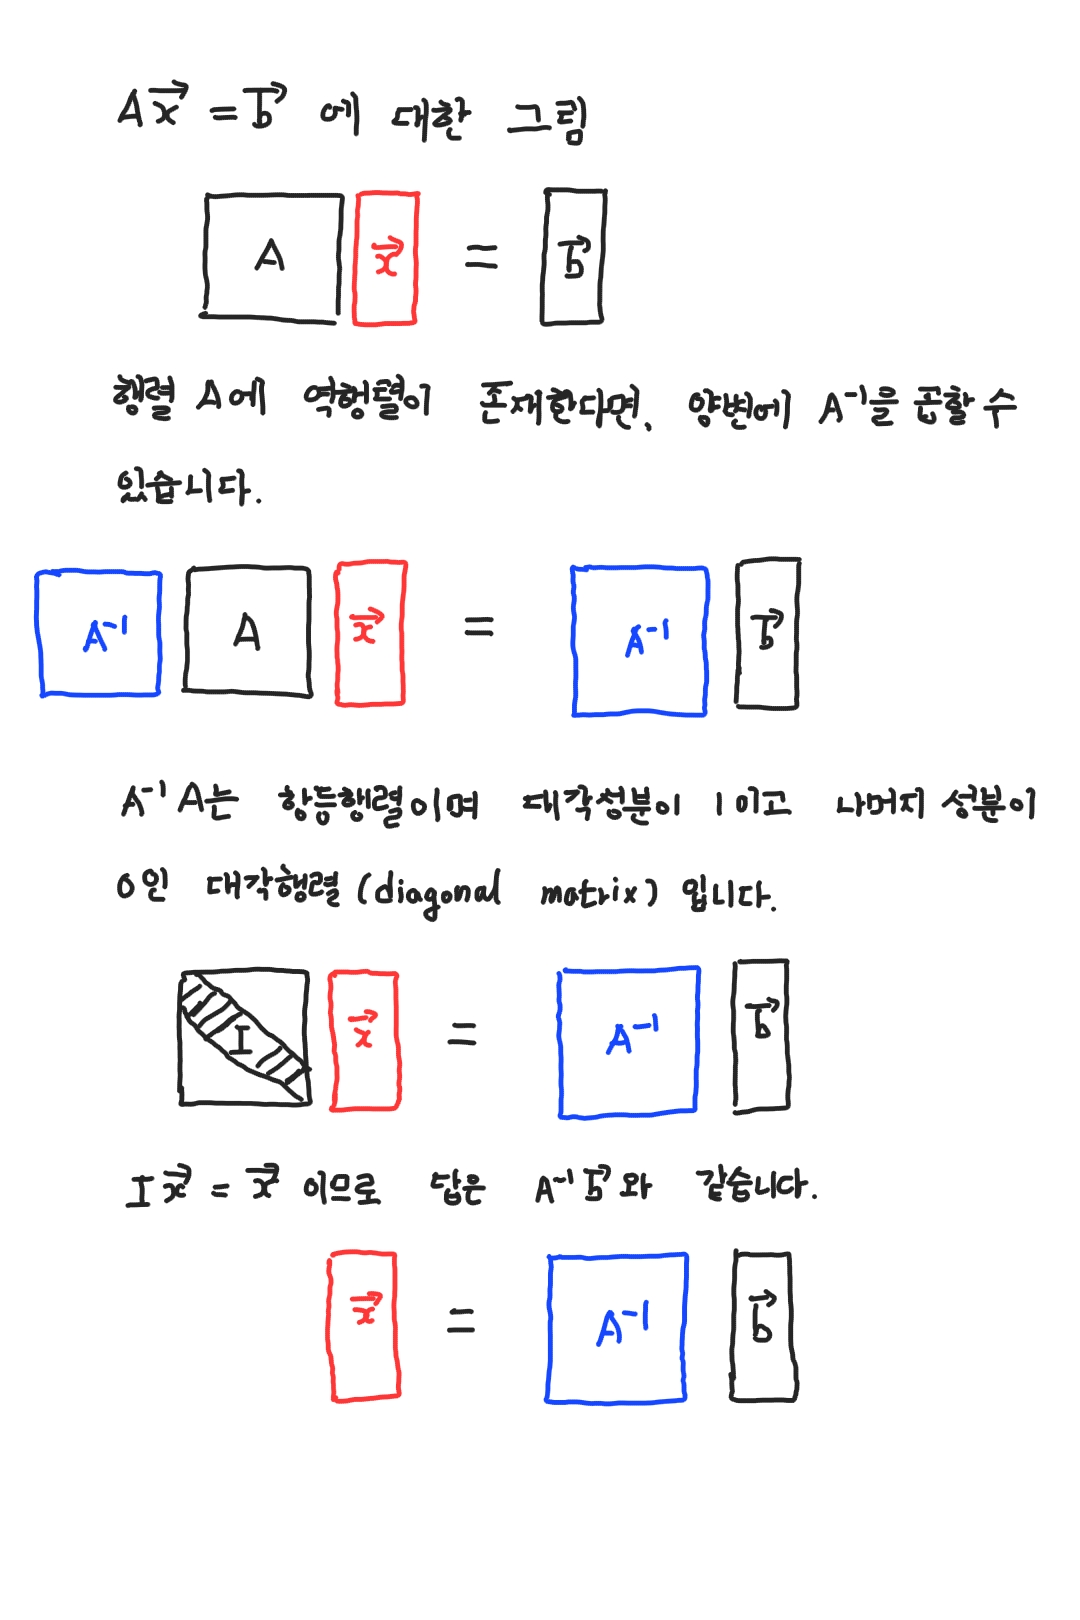 Ax⃗ = b⃗ 에 대한 그림
A x⃗ = b⃗
행렬 A에 역행렬이 존재한다면, 양변에 A⁻¹을 곱할 수
있습니다.
A⁻¹ A x⃗ = A⁻¹ b⃗
A⁻¹A는 항등행렬이며 대각성분이 1이고 나머지 성분이
0인 대각행렬 (diagonal matrix) 입니다.
I x⃗ = A⁻¹ b⃗
Ix⃗ = x⃗ 이므로 답은 A⁻¹b⃗와 같습니다.
x⃗ = A⁻¹ b⃗